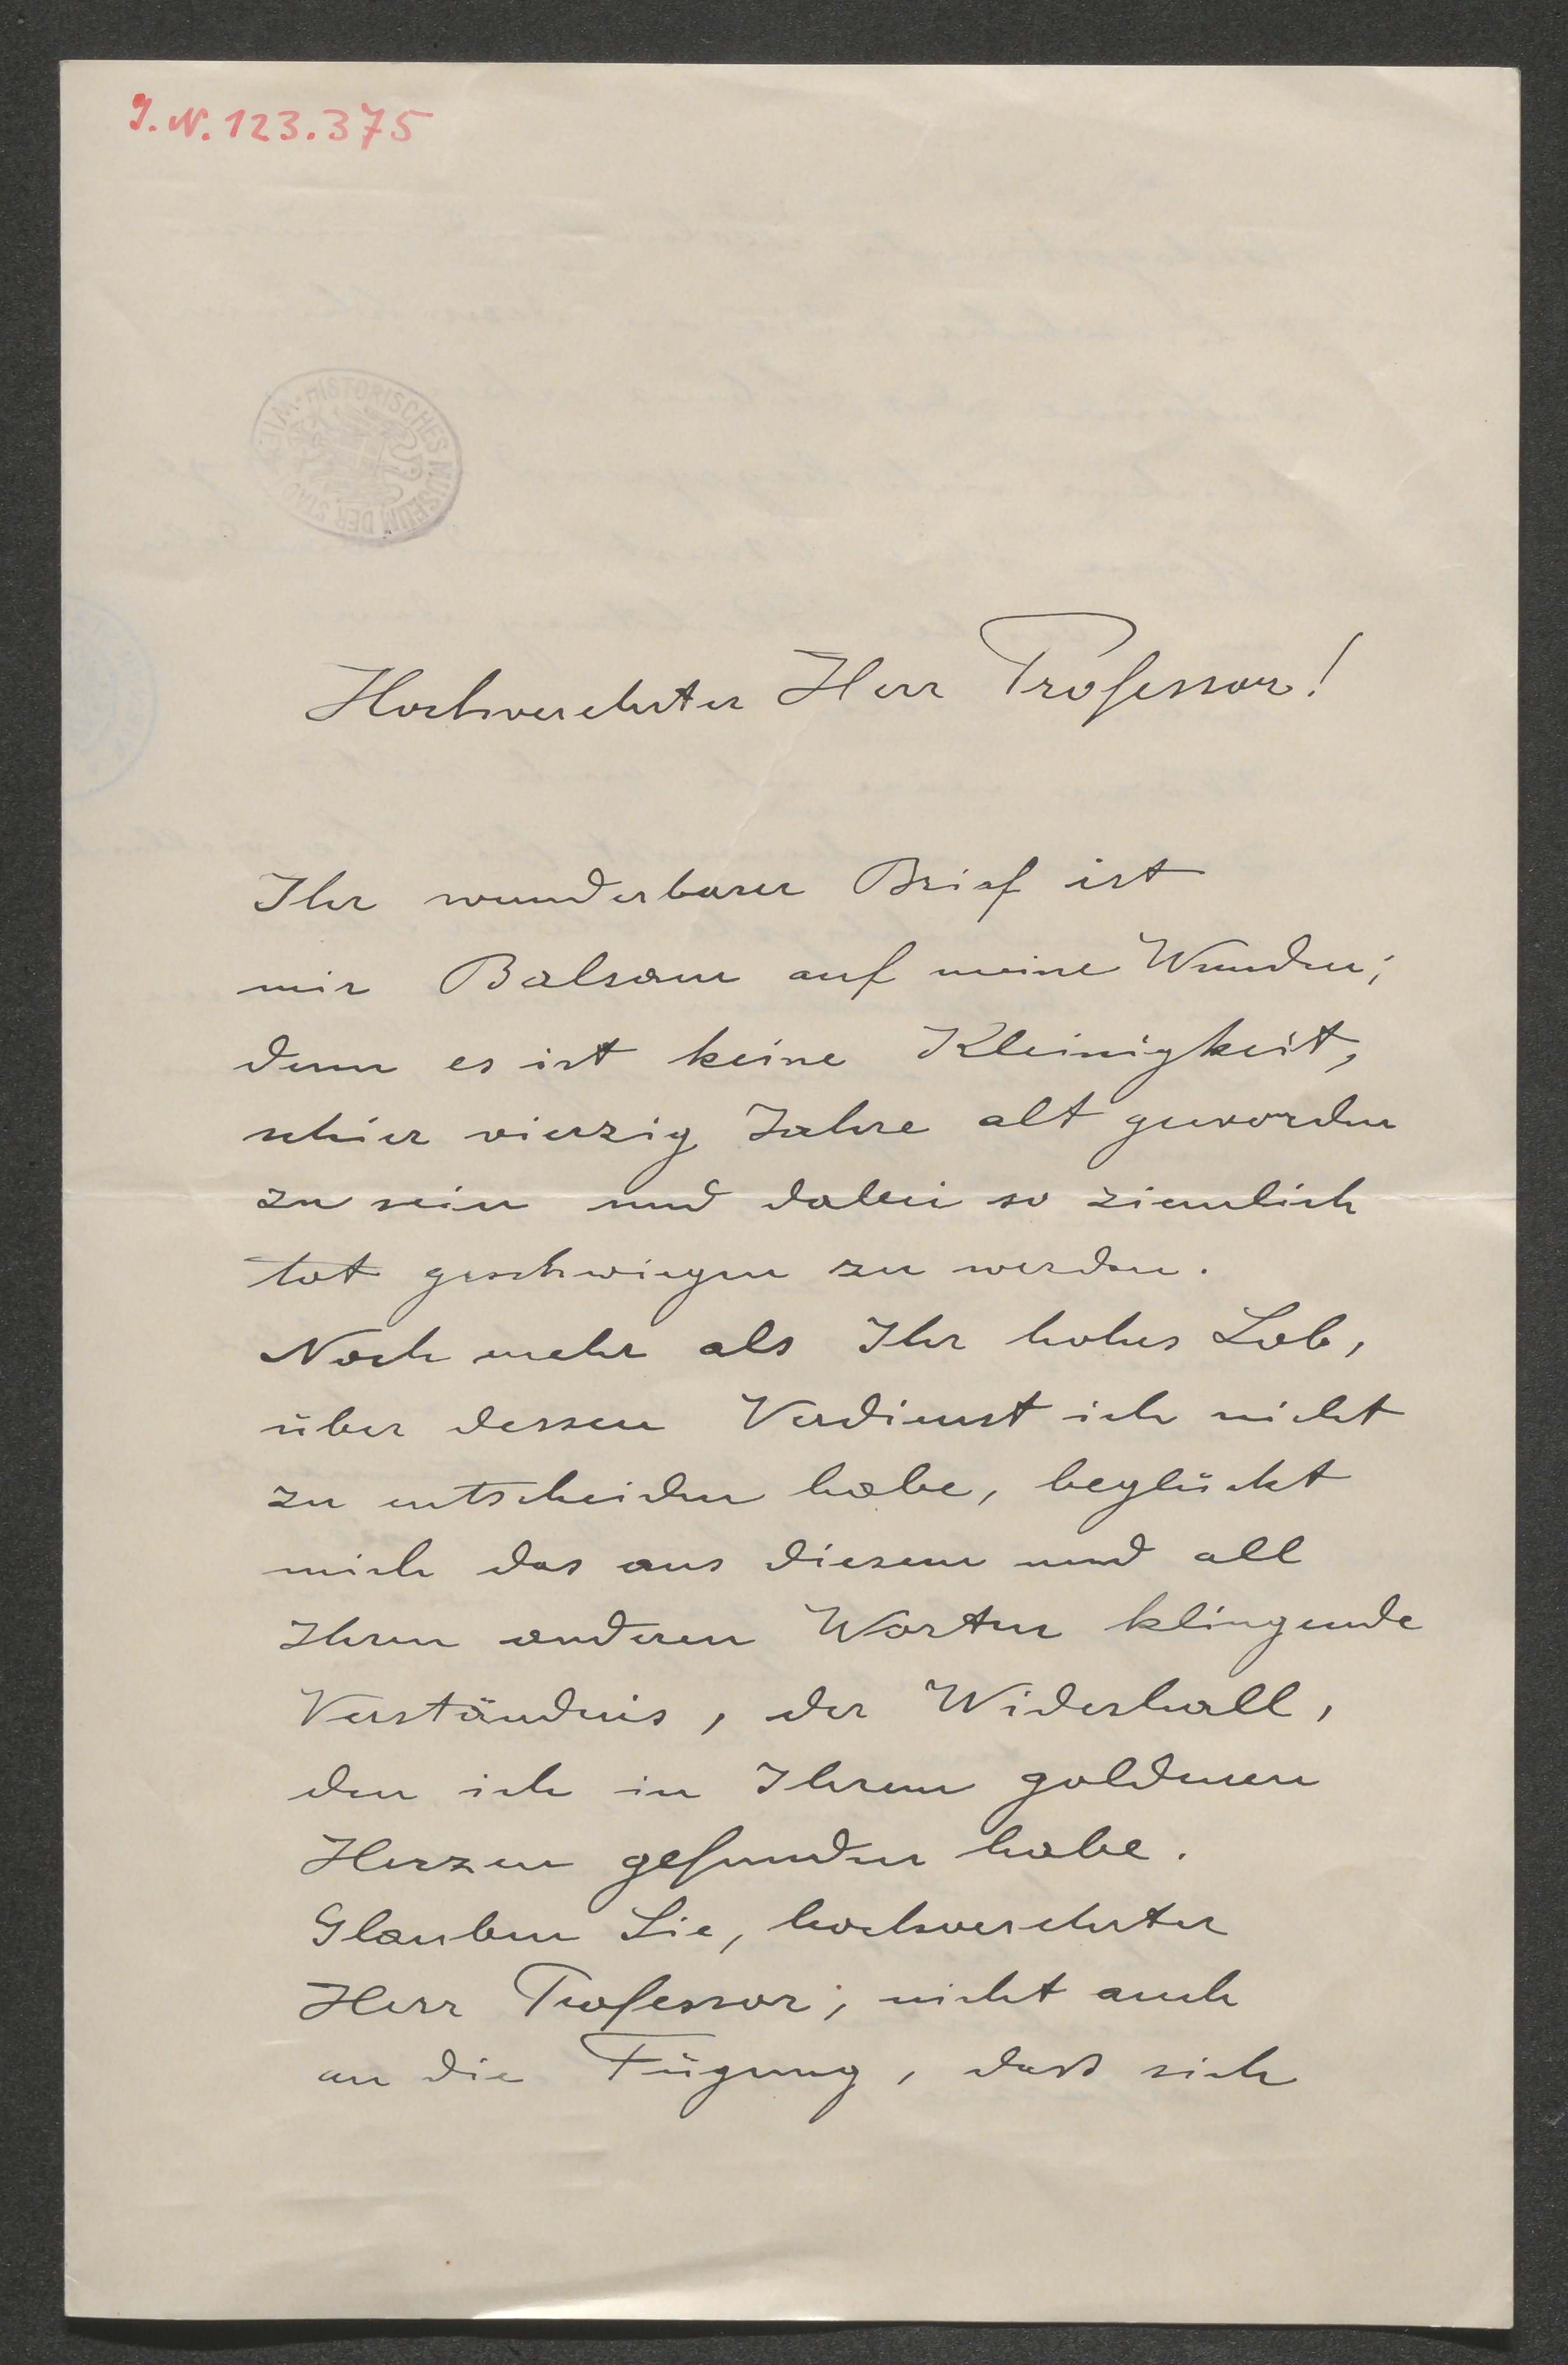 J.N. 123.375
HISTORISCHES MUSEUM DER STADT WIEN
Hochverehrter Herr Professor!
Ihr wunderbarer Brief ist
mir Balsam auf meine Wunden;
denn es ist keine Kleinigkeit,
schier vierzig Jahre alt geworden
zu sein und dabei so ziemlich
tot geschwiegen zu werden.
Noch mehr als Ihr hohes Lob,
über dessen Verdienst ich nicht
zu entscheiden habe, beglückt
mich das aus diesem und all
Ihren anderen Worten klingende
Verständnis, der Widerhall,
den ich in Ihrem goldenen
Herzen gefunden habe.
Glauben Sie, hochverehrter
Herr Professor, nicht auch
an die Fügung, dass sich